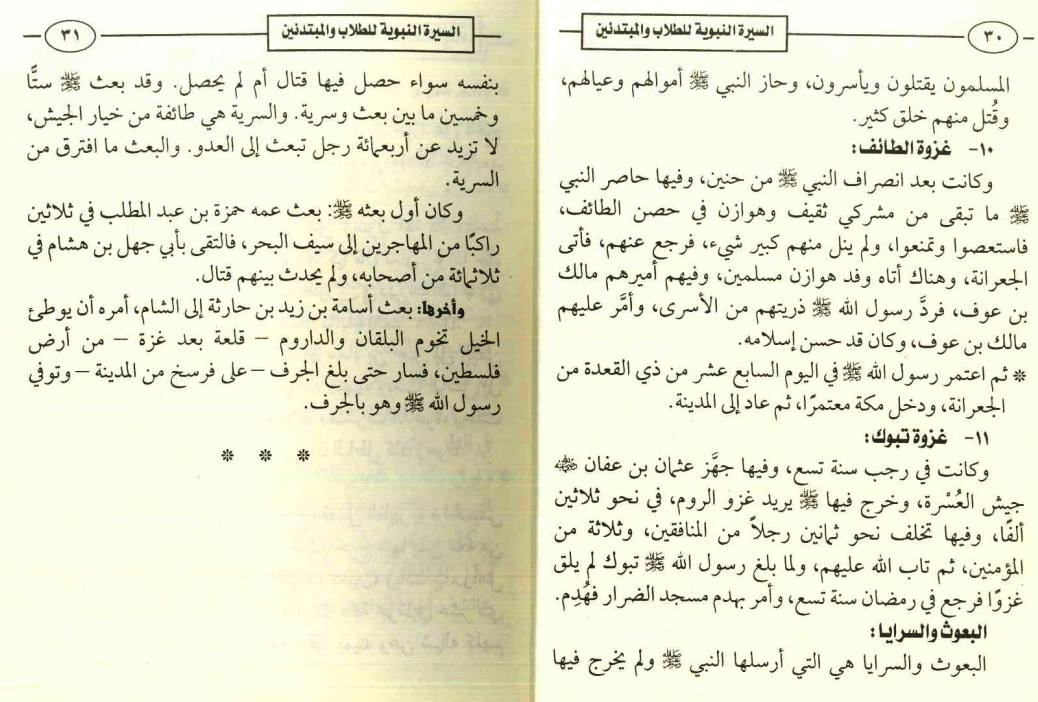 ٣٠
السيرة النبوية للطلاب والمبتدئين
المسلمون يقتلون ويأسرون، وحاز النبي ﷺ أموالهم وعيالهم،
وقُتل منهم خلق كثير.
١٠- غزوة الطائف:
وكانت بعد انصراف النبي ﷺ من حنين، وفيها حاصر النبي
ﷺ ما تبقى من مشركي ثقيف وهوازن في حصن الطائف،
فاستعصوا وتمنعوا، ولم ينل منهم كبير شيء، فرجع عنهم، فأتى
الجعرانة، وهناك أتاه وفد هوازن مسلمين، وفيهم أميرهم مالك
بن عوف، فردَّ رسول الله ﷺ ذريتهم من الأسرى، وأمَّر عليهم
مالك بن عوف، وكان قد حسن إسلامه.
* ثم اعتمر رسول الله ﷺ في اليوم السابع عشر من ذي القعدة من
الجعرانة، ودخل مكة معتمرًا، ثم عاد إلى المدينة.
١١- غزوة تبوك:
وكانت في رجب سنة تسع، وفيها جهَّز عثمان بن عفان رضي الله عنه
جيش العُسْرة، وخرج فيها ﷺ يريد غزو الروم، في نحو ثلاثين
ألفًا، وفيها تخلف نحو ثمانين رجلاً من المنافقين، وثلاثة من
المؤمنين، ثم تاب الله عليهم، ولما بلغ رسول الله ﷺ تبوك لم يلق
غزوًا فرجع في رمضان سنة تسع، وأمر بهدم مسجد الضرار فهُدِم.
البعوث والسرايا:
البعوث والسرايا هي التي أرسلها النبي ﷺ ولم يخرج فيها
السيرة النبوية للطلاب والمبتدئين
٣١
بنفسه سواء حصل فيها قتال أم لم يحصل. وقد بعث ﷺ ستًّا
وخمسين ما بين بعث وسرية. والسرية هي طائفة من خيار الجيش،
لا تزيد عن أربعمائة رجل تبعث إلى العدو. والبعث ما افترق من
السرية.
وكان أول بعثه ﷺ: بعث عمه حمزة بن عبد المطلب في ثلاثين
راكبًا من المهاجرين إلى سيف البحر، فالتقى بأبي جهل بن هشام في
ثلاثمائة من أصحابه، ولم يحدث بينهم قتال.
وآخرها: بعث أسامة بن زيد بن حارثة إلى الشام، أمره أن يوطئ
الخيل تخوم البلقان والداروم – قلعة بعد غزة – من أرض
فلسطين، فسار حتى بلغ الجرف – على فرسخ من المدينة – وتوفي
رسول الله ﷺ وهو بالجرف.
* * *